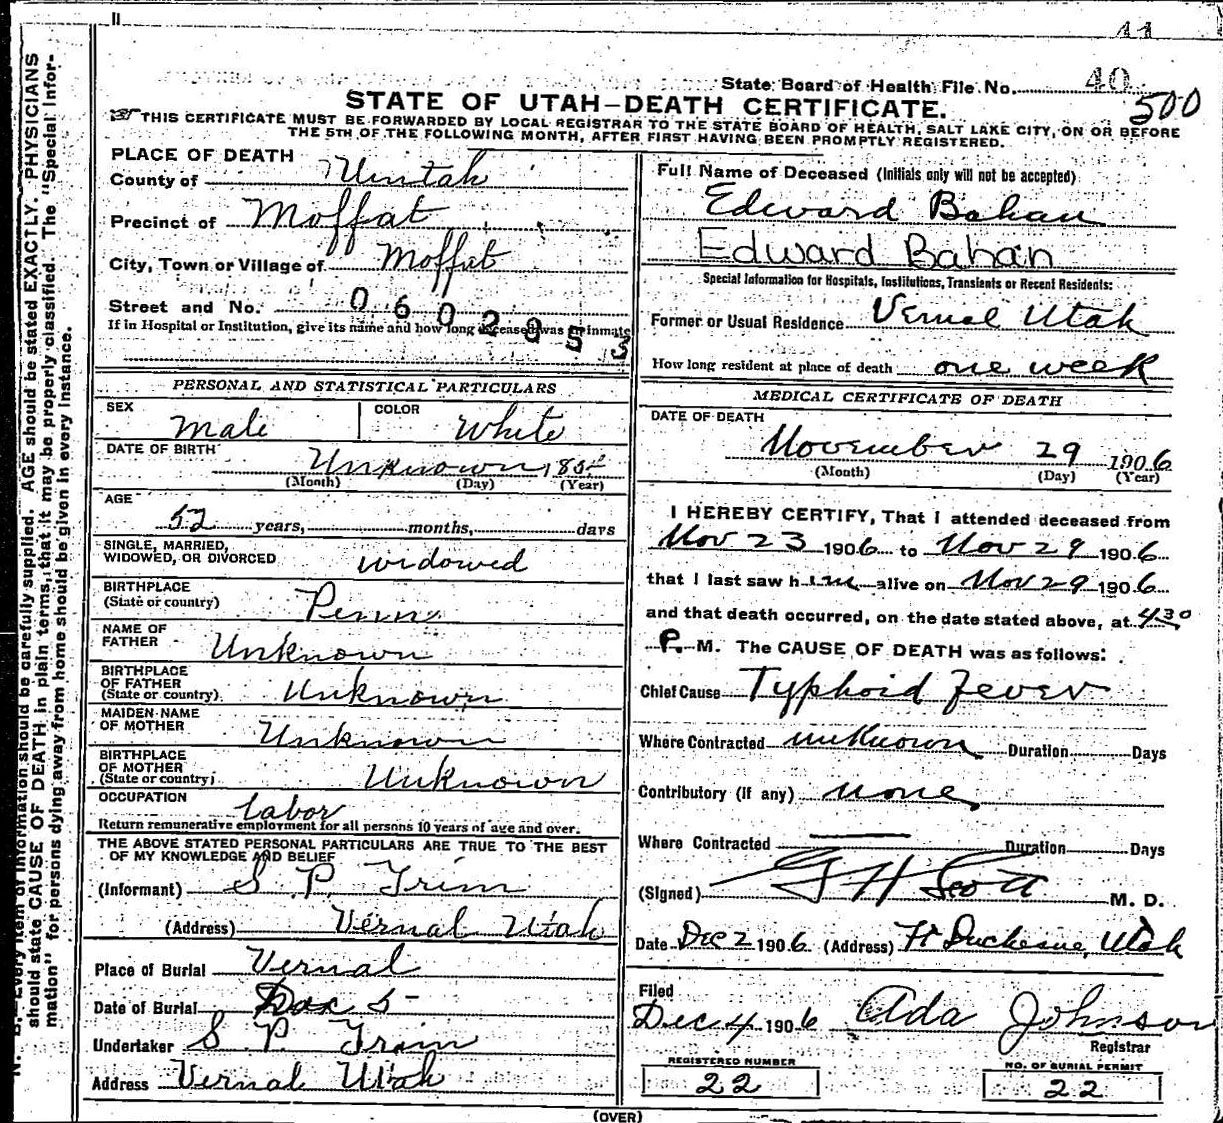 11
State Board of Health File No. 40
500
STATE OF UTAH—DEATH CERTIFICATE.
THIS CERTIFICATE MUST BE FORWARDED BY LOCAL REGISTRAR TO THE STATE BOARD OF HEALTH, SALT LAKE CITY, ON OR BEFORE
THE 5TH OF THE FOLLOWING MONTH, AFTER FIRST HAVING BEEN PROMPTLY REGISTERED.
PLACE OF DEATH
County of Uintah
Precinct of Moffat
City, Town or Village of Moffat
Street and No. 0602053
If in Hospital or Institution, give its name and how long deceased was inmate
PERSONAL AND STATISTICAL PARTICULARS
SEX Male COLOR White
DATE OF BIRTH Unknown 185
(Month) (Day) (Year)
AGE
52 years, months, days
SINGLE, MARRIED,
WIDOWED, OR DIVORCED widowed
BIRTHPLACE
(State or country) Penn
NAME OF
FATHER Unknown
BIRTHPLACE
OF FATHER
(State or country) Unknown
MAIDEN NAME
OF MOTHER Unknown
BIRTHPLACE
OF MOTHER
(State or country) Unknown
OCCUPATION Labor
Return remunerative employment for all persons 10 years of age and over.
THE ABOVE STATED PERSONAL PARTICULARS ARE TRUE TO THE BEST
OF MY KNOWLEDGE AND BELIEF
(Informant) S P Trim
(Address) Vernal Utah
Place of Burial Vernal
Date of Burial Dec 5
Undertaker S P Trim
Address Vernal Utah
Full Name of Deceased (Initials only will not be accepted)
Edward Bahan
Edward Bahan
Special Information for Hospitals, Institutions, Transients or Recent Residents:
Former or Usual Residence Vernal Utah
How long resident at place of death one week
MEDICAL CERTIFICATE OF DEATH
DATE OF DEATH
November 29 1906
(Month) (Day) (Year)
I HEREBY CERTIFY, That I attended deceased from
Nov 23 1906 to Nov 29 1906
that I last saw him alive on Nov 29 1906
and that death occurred, on the date stated above, at 430
P. M. The CAUSE OF DEATH was as follows:
Chief Cause Typhoid Fever
Where Contracted unknown Duration Days
Contributory (If any) none
Where Contracted Duration Days
(Signed) G H Scott M. D.
Date Dec 2 1906 (Address) Ft Duchesne, Utah
Filed
Dec 4 1906 Ada Johnson
Registrar
REGISTERED NUMBER
22
NO. OF BURIAL PERMIT
22
(OVER)
N. B.—Every item of information should be carefully supplied. AGE should be stated EXACTLY. PHYSICIANS
should state CAUSE OF DEATH in plain terms, that it may be properly classified. The "Special Infor-
mation" for persons dying away from home should be given in every instance.